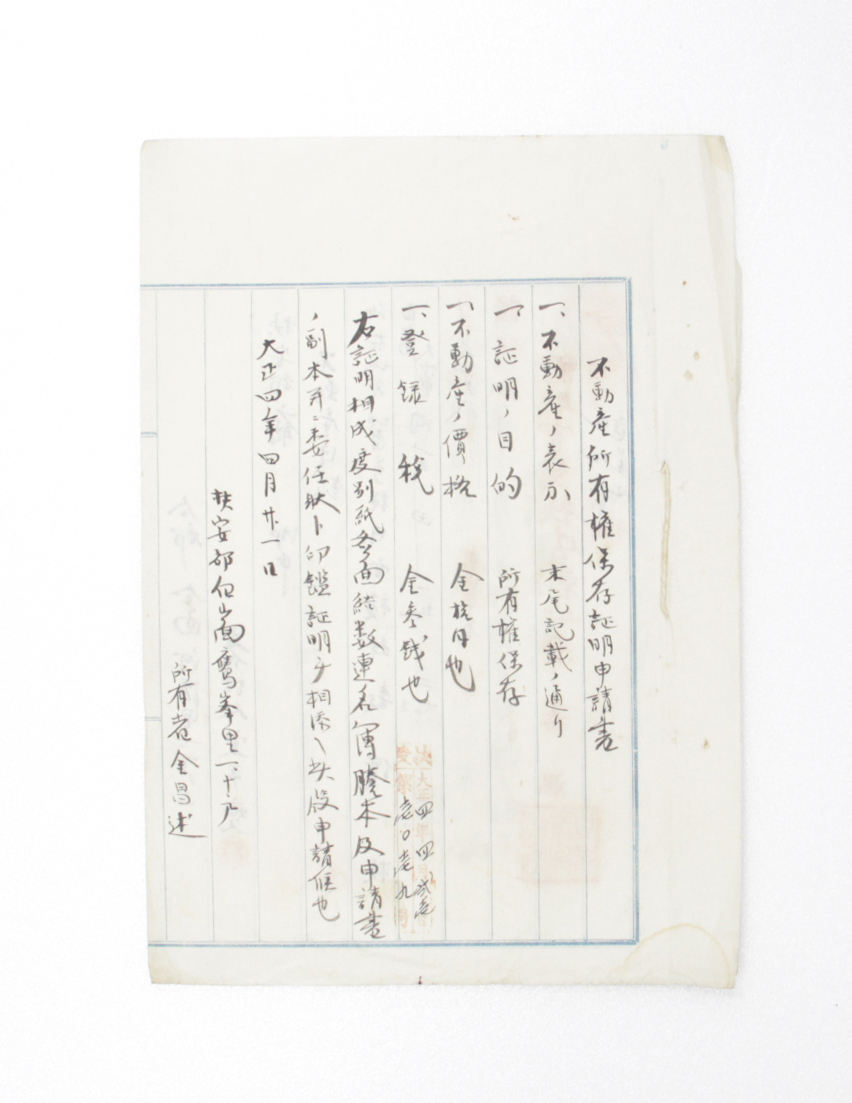 不動産所有権保存証明申請書
一、不動産ノ表示 末尾記載ノ通リ
一、証明ノ目的 所有権保存
一、不動産ノ價格 金拾円也
一、登録税 金参銭也
右証明相成度別紙各面結数連名簿謄本及申請書
ノ副本并ニ委任状ト印鑑証明ヲ相添ヘ此段申請候也
大正四年四月廿一日
扶安郡白山面鷹峯里一ノ十ノ戸
所有者 金昌述
大正四年四月弐壱
受 壱〇七九